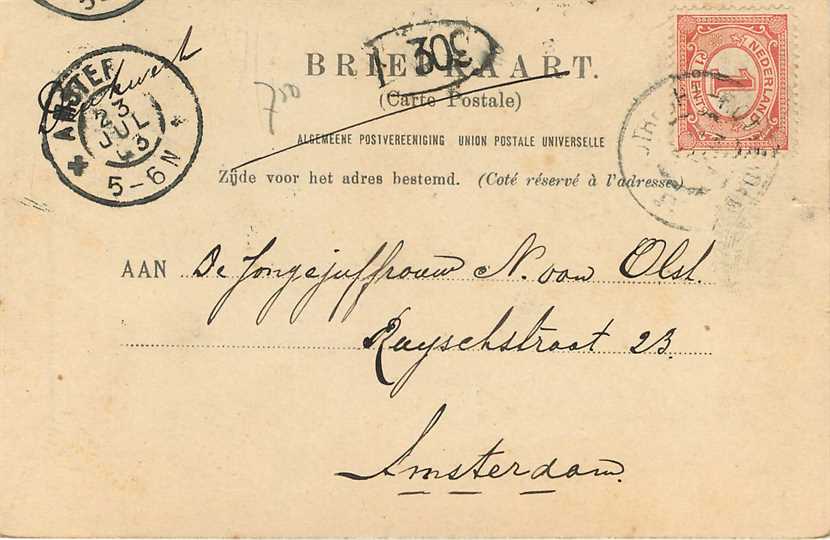 Drukwerk
AMSTER
23
JUL
03
5-6N
30
700
BRIEFKAART.
(Carte Postale)
ALGEMEENE POSTVEREENIGING UNION POSTALE UNIVERSELLE
Zijde voor het adres bestemd. (Coté réservé à l'adresse.)
NEDERLAND
1
CENT
AAN De Jongejuffrouw N. van Olst.
Ruyschstraat 23.
Amsterdam.